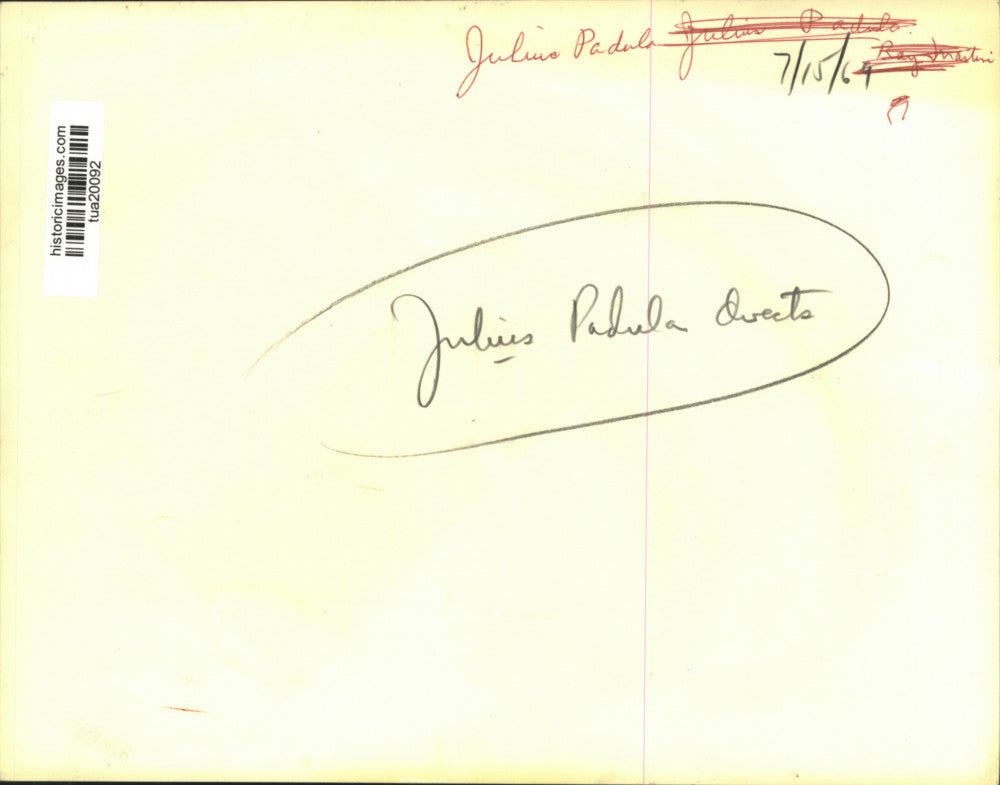 Julius Padula Julius Padula
7/15/69 Ray Martini
historicimages.com
tua20092
Julius Padula Directs